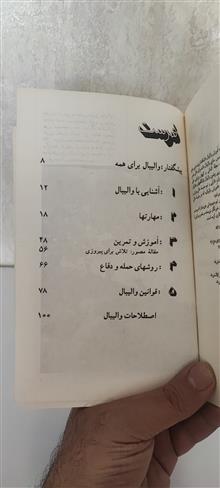 فهرست
پیشگفتار: والیبال برای همه ۸
۱ : آشنایی با والیبال ۱۲
۲ : مهارتها ۱۸
۳ : آموزش و تمرین ۴۸
مقاله مصور: تلاش برای پیروزی ۵۶
۴ : روشهای حمله و دفاع ۶۶
۵ : قوانین والیبال ۷۸
اصطلاحات والیبال ۱۰۰